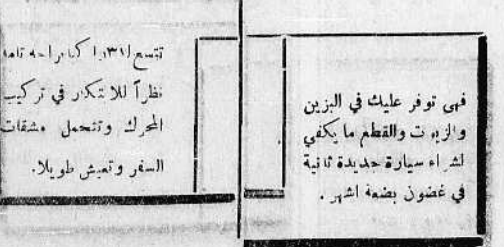 فهى توفر عليك في البزين
والزيوت والقطع ما يكفي
لشراء سيارة جديدة ثانية
في غضون بضعة اشهر .
تتسع راكبا براحه تامة
نظراً للابتكار في تركيب
المحرك وتتحمل مشقات
السفر وتعيش طويلا .